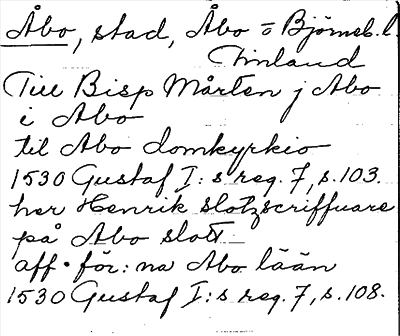 Åbo, stad, Åbo o Björneb. l.
Finland
Till Bisp Mårten j Abo
i Abo
til Abo domkyrkio
1530 Gustaf I:s reg. 7, s. 103.
her Henrik slotzscriffuare
på Abo slott
aff för:na Abo lään
1530 Gustaf I:s reg. 7, s. 108.